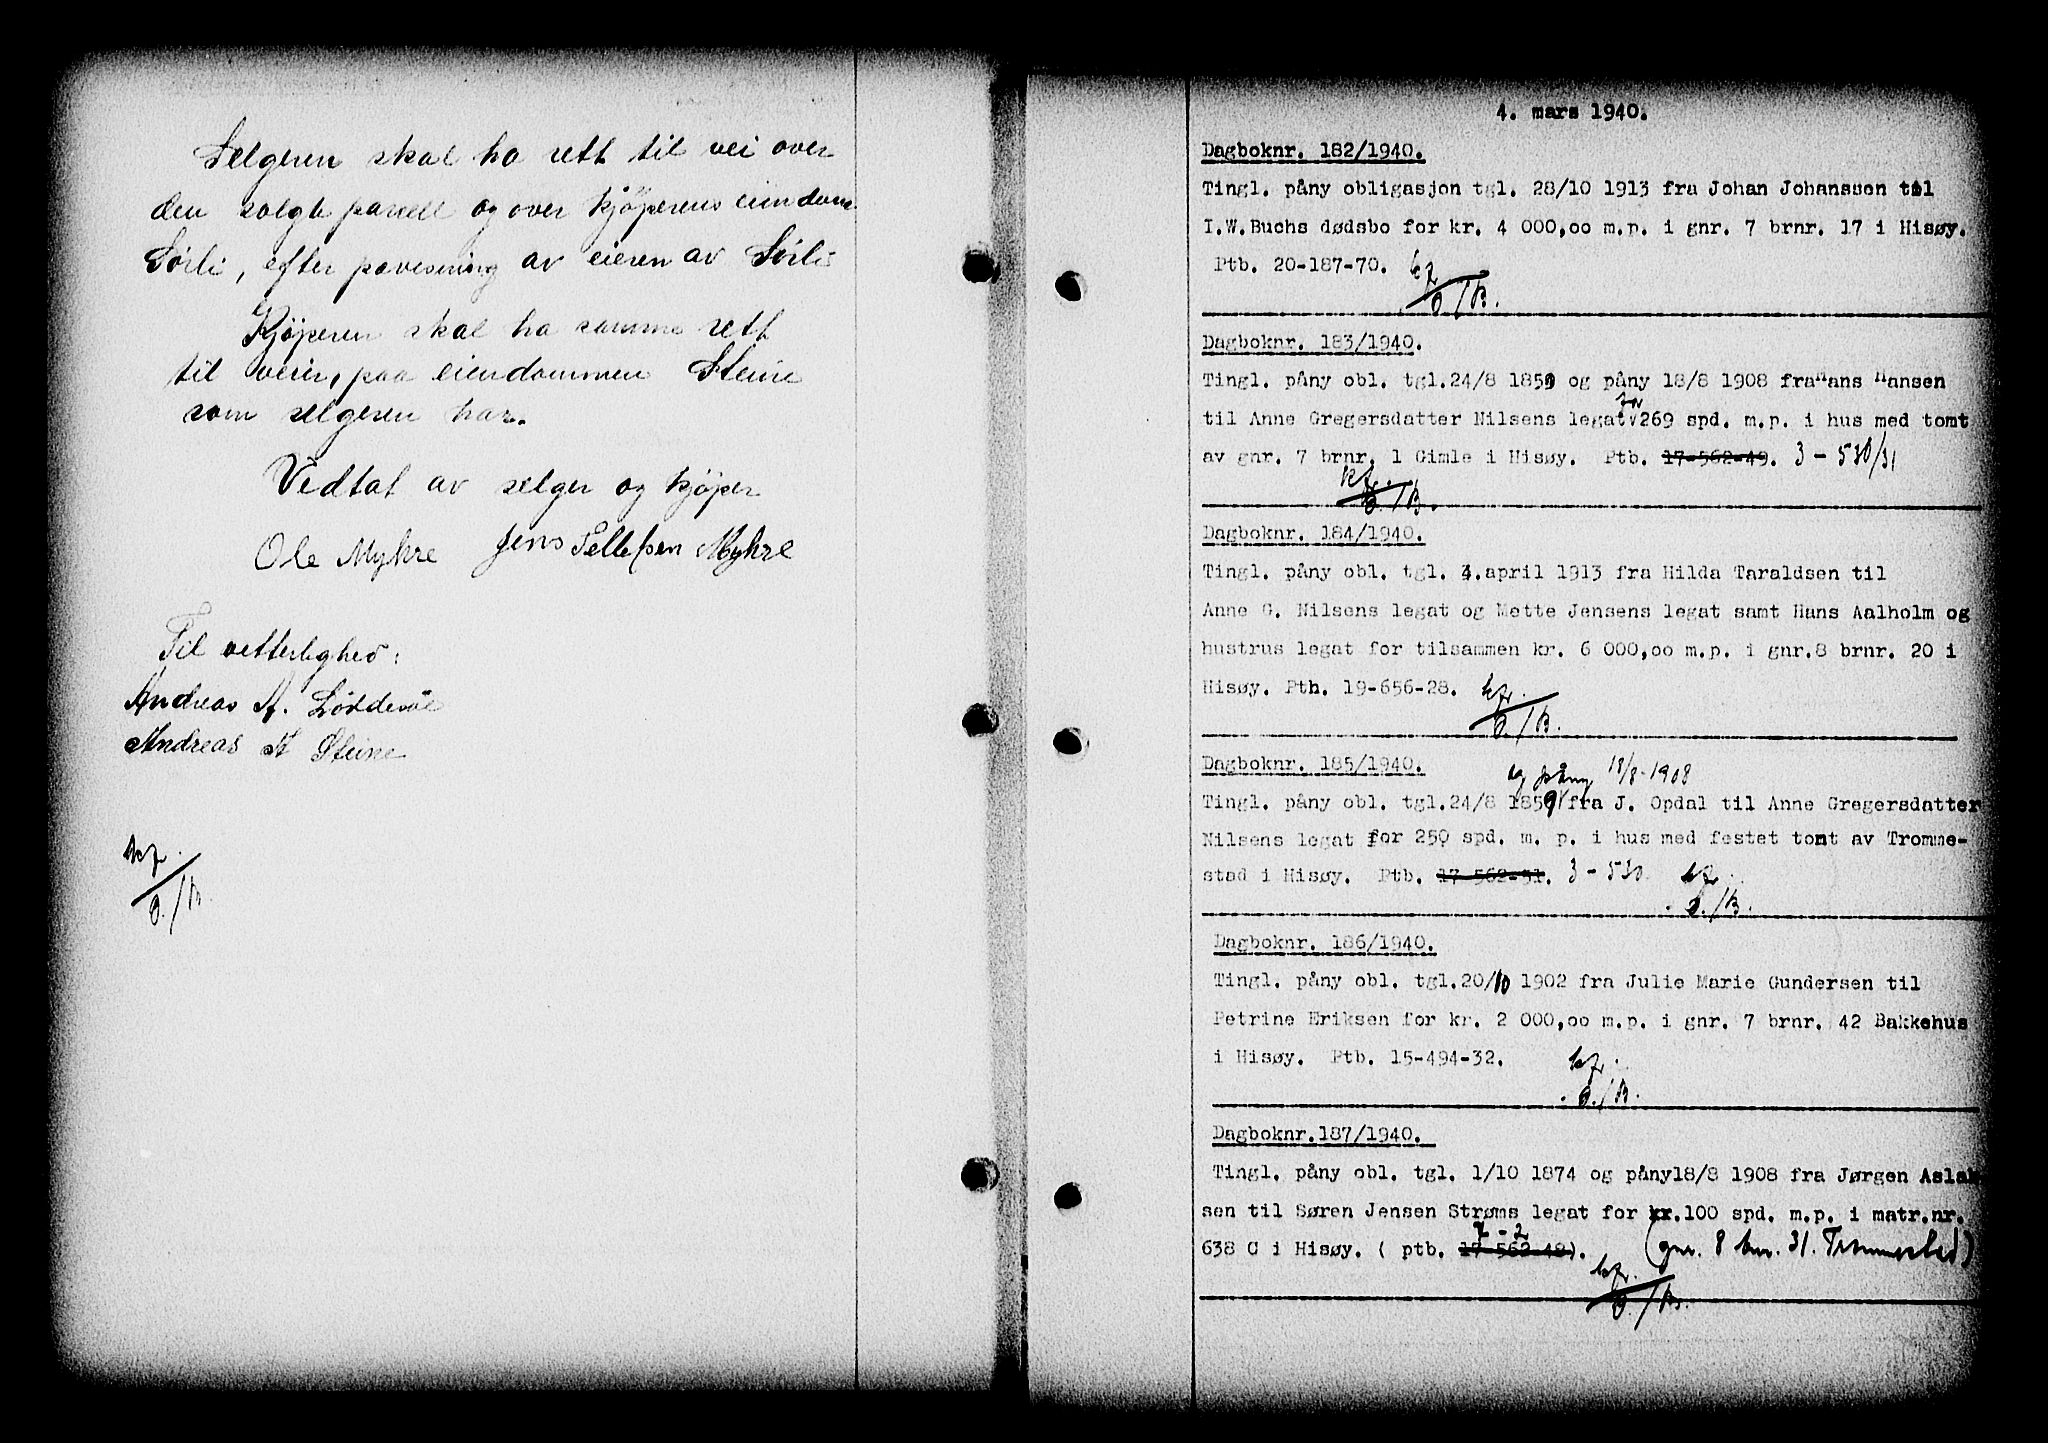 Selgeren skal ha rett til vei over
den solgte parcell og over kjöperens eiendom
Sörli, efter paavisning av eieren av Sörli
Kjöperen skal ha samme rett
til veier, paa eiendommen Steine
som selgeren har.
Vedtat av selger og kjöper
Ole Myhre Jens Tellefsen Myhre
Til vetterlighed:
Andreas A. Löddesöl
Andreas A Steine
4. mars 1940.
Dagboknr. 182/1940.
Tingl. påny obligasjon tgl. 28/10 1913 fra Johan Johanssen til
I.W.Buchs dødsbo for kr. 4 000,oo m.p. i gnr. 7 brnr. 17 i Hisøy.
Ptb. 20-187-70.
Dagboknr. 183/1940.
Tingl. påny obl. tgl.24/8 1859 og påny 18/8 1908 fra Hans Hansen
til Anne Gregersdatter Nilsens legat for 269 spd. m.p. i hus med tomt
av gnr. 7 brnr. 1 Gimle i Hisøy. Ptb. 17-562-49. 3-530/31
Dagboknr. 184/1940.
Tingl. påny obl. tgl. 4.april 1913 fra Hilda Taraldsen til
Anne G. Nilsens legat og Mette Jensens legat samt Hans Aalholm og
hustrus legat for tilsammen kr. 6 000,oo m.p. i gnr.8 brnr. 20 i
Hisøy. Pth. 19-656-28.
Dagboknr. 185/1940. og påny 18/8-1908
Tingl. påny obl. tgl.24/8 1859 fra J. Opdal til Anne Gregersdatter
Nilsens legat for 250 spd. m. p. i hus med festet tomt av Tromme-
stad i Hisøy. Ptb. 17-562-51. 3-530
Dagboknr. 186/1940.
Tingl. påny obl. tgl.20/10 1902 fra Julie Marie Gundersen til
Petrine Eriksen for kr. 2 000,oo m.p. i gnr. 7 brnr. 42 Bakkehus
i Hisøy. Ptb. 15-494-32.
Dagboknr.187/1940.
Tingl. påny obl. tgl. 1/10 1874 og påny18/8 1908 fra Jørgen Aslak
sen til Søren Jensen Strøms legat for kr.100 spd. m.p. i matr.nr.
638 C i Hisøy. ( ptb. 17-562-48). (gnr. 8 bnr. 31. Trommestad)